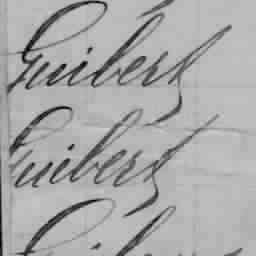 Guibert
Guibert